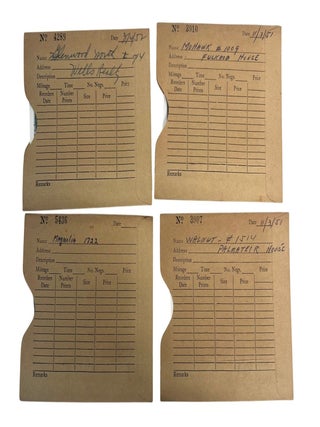 No 4289 Date 3/10/52
Name Glenwood North # 174
Address
Description Wills Built
Mileage Time No. Negs. Price
Reorders Date Number Prints Size Price
Remarks
No 3910 Date 11/3/51
Name MOHAWK # 1009
Address HOUSE
Description
Mileage Time No. Negs. Price
Reorders Date Number Prints Size Price
Remarks
No 5426 Date
Name Magnolia 1722
Address
Description
Mileage Time No. Negs. Price
Reorders Date Number Prints Size Price
Remarks
No 3907 Date 11/3/51
Name WALNUT - # 1514
Address PALMATEIR HOUSE
Description
Mileage Time No. Negs. Price
Reorders Date Number Prints Size Price
Remarks